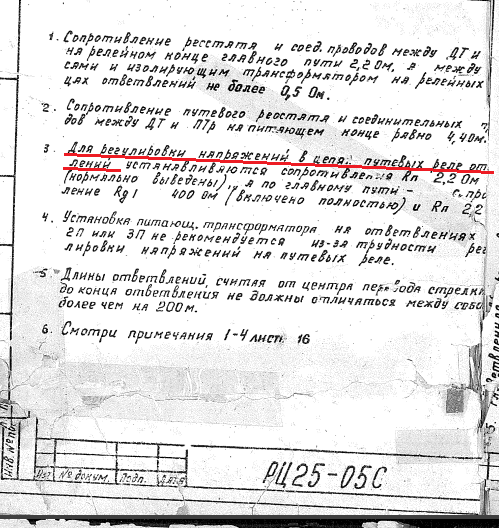 1. Сопротивление реостата и соед. проводов между ДТ и
на релейном конце главного пути 2,2 Ом, а между
сями и изолирующим трансформатором на релейных
цях ответвлений не более 0,5 Ом.
2. Сопротивление путевого реостата и соединительных п
дов между ДТ и ПТр на питающем конце равно 4,4 Ом.
3. Для регулировки напряжений в цепях путевых реле от
лений устанавливаются сопротивления Rп 2,2 Ом
(нормально выведены), а по главному пути -
ление Rg1 400 Ом (включено полностью) и Rп 2,2
4. Установка питающ. трансформатора на ответвлениях
2П или 3П не рекомендуется из-за трудности рег
лировки напряжений на путевых реле.
5. Длины ответвлений, считая от центра перевода стрелки
до конца ответвления не должны отличаться между собо
более чем на 200 м.
6. Смотри примечания 1-4 лист 16
Инв. № по
№ докум. Подп. Дата
РЦ25-05С